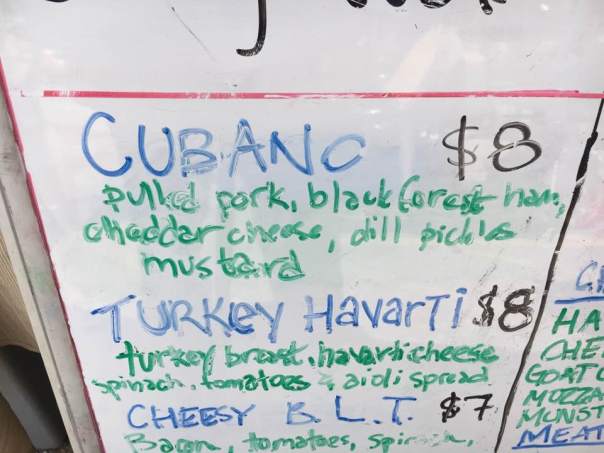 CUBANO $8
pulled pork, black forest ham,
cheddar cheese, dill pickles
mustard
TURKEY HavarTi $8
turkey breast, havarti cheese
spinach, tomatoes & aioli spread
CHEESY B.L.T. $7
Bacon, tomatoes, spinach,
HA
CHE
GOAT
MOZZA
MUNST
MEAT